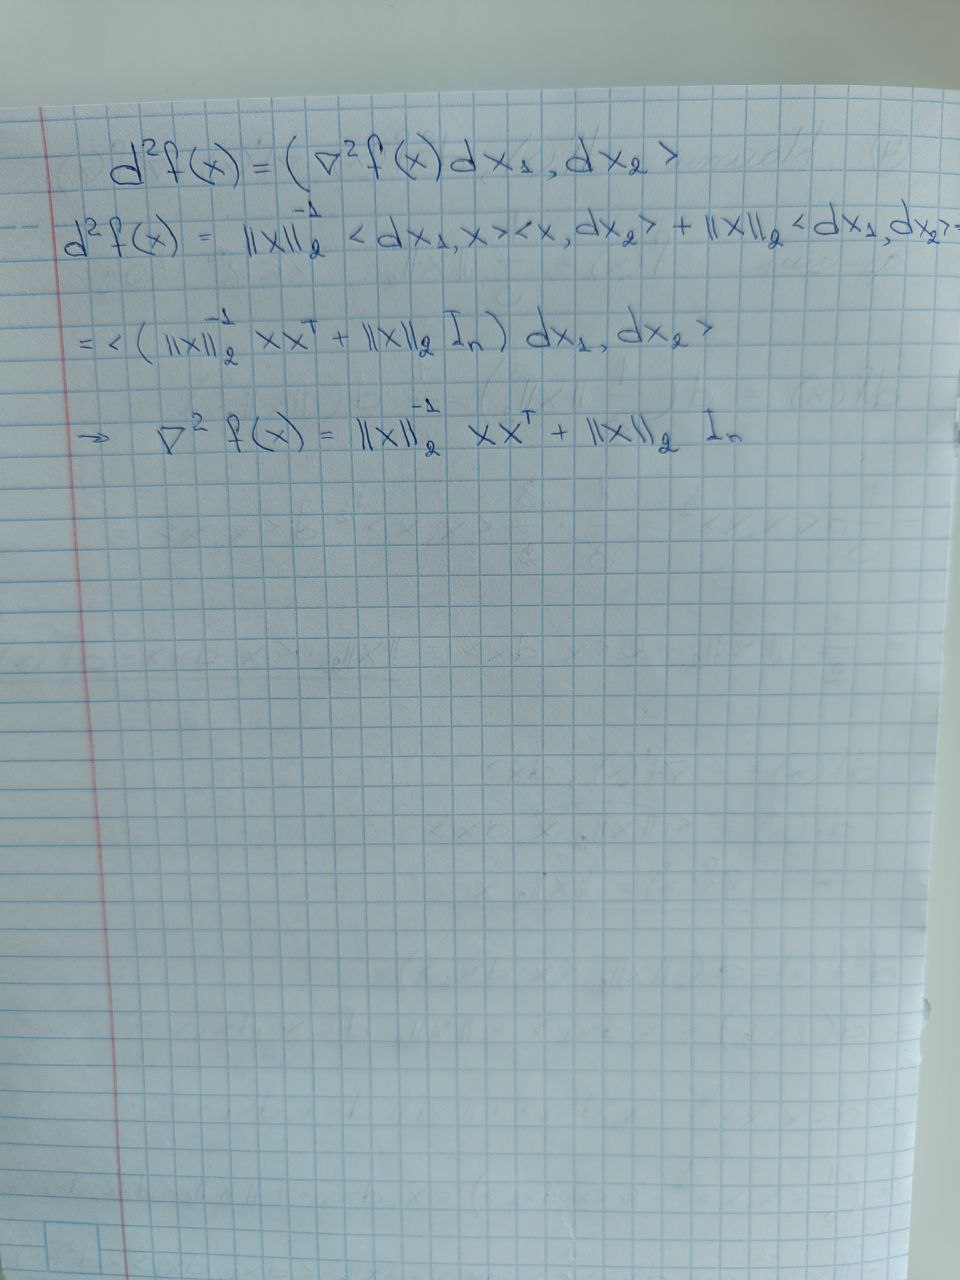 d²f(x) = (∇²f(x) dx₁, dx₂>
d²f(x) = ||x||₂⁻¹ <dx₁, x><x, dx₂> + ||x||₂ <dx₁, dx₂> =
= <(||x||₂⁻¹ xxᵀ + ||x||₂ Iₙ) dx₁, dx₂>
→ ∇² f(x) = ||x||₂⁻¹ xxᵀ + ||x||₂ Iₙ